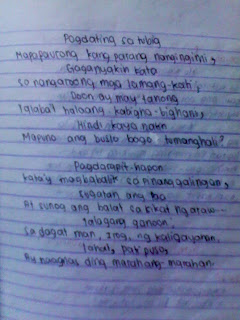 Pagdating sa tubig
Mapapaurong kang parang nangingimi,
Gaganyakin kata
sa nangaroong mga lamang-kati;
Doon ay may tahong
talaba't halaang kabigha-bighani,
Hindi kaya natin
Mapuno ang buslo bago tumanghali?
Pagdarapit-hapon
kata'y magbabalik sa pinanggalingan,
sugatan ang paa
At sunog ang balat sa sikat ng araw
Talagang ganoon
sa dagat man, irog, ng kaligayahan
lahat, pati puso
Ay naaagnas ding marahang-marahan